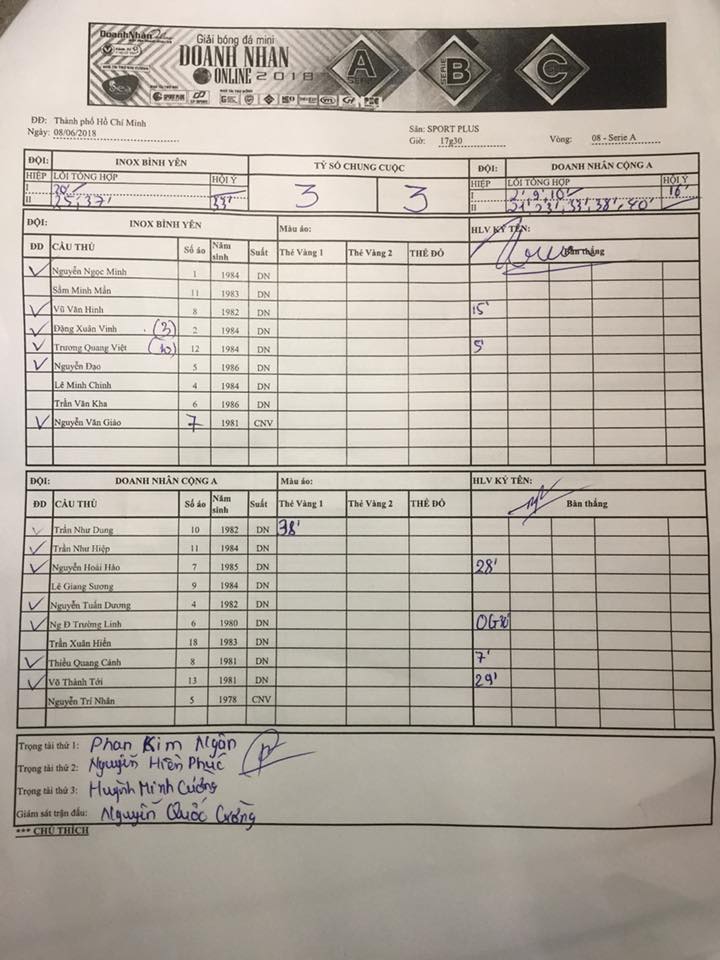 DoanhNhan
Giải bóng đá mini
DOANH NHÂN
ONLINE 2018
A SERIE
SERIE B
C
Sea
SPORT PLUS
ĐĐ: Thành phố Hồ Chí Minh
Sân: SPORT PLUS
Ngày: 08/06/2018 Giờ: 17g30 Vòng: 08 - Serie A
ĐỘI: INOX BÌNH YÊN TỶ SỐ CHUNG CUỘC ĐỘI: DOANH NHÂN CỘNG A
HIỆP LỖI TỔNG HỢP HỘI Ý 3 3 HIỆP LỖI TỔNG HỢP HỘI Ý
I 20' I 2', 9', 10' 16'
II 25', 37' 33' II 21', 23', 33', 38', 40'
ĐỘI: INOX BÌNH YÊN Màu áo: HLV KÝ TÊN:
ĐD CẦU THỦ Số áo Năm sinh Suất Thẻ Vàng 1 Thẻ Vàng 2 THẺ ĐỎ Bàn thắng
Nguyễn Ngọc Minh 1 1984 DN
Sầm Minh Mẫn 11 1983 DN
Vũ Văn Hinh 8 1982 DN 15'
Đặng Xuân Vinh (3) 2 1984 DN
Trương Quang Việt (10) 12 1984 DN 5'
Nguyễn Đạo 5 1986 DN
Lê Minh Chinh 4 1984 DN
Trần Văn Kha 6 1986 DN
Nguyễn Văn Giáo 7 1981 CNV
ĐỘI: DOANH NHÂN CỘNG A Màu áo: HLV KÝ TÊN:
ĐD CẦU THỦ Số áo Năm sinh Suất Thẻ Vàng 1 Thẻ Vàng 2 THẺ ĐỎ Bàn thắng
Trần Như Dung 10 1982 DN 38'
Trần Như Hiệp 11 1984 DN
Nguyễn Hoài Hảo 7 1985 DN 28'
Lê Giang Sương 9 1984 DN
Nguyễn Tuấn Dương 4 1982 DN
Ng Đ Trường Linh 6 1980 DN OG30'
Trần Xuân Hiển 18 1983 DN
Thiều Quang Cảnh 8 1981 DN 7'
Võ Thành Tới 13 1981 DN 29'
Nguyễn Trí Nhân 5 1978 CNV
Trọng tài thứ 1: Phan Kim Ngân
Trọng tài thứ 2: Nguyễn Hiền Phúc
Trọng tài thứ 3: Huỳnh Minh Cường
Giám sát trận đấu: Nguyễn Quốc Cường
*** CHÚ THÍCH